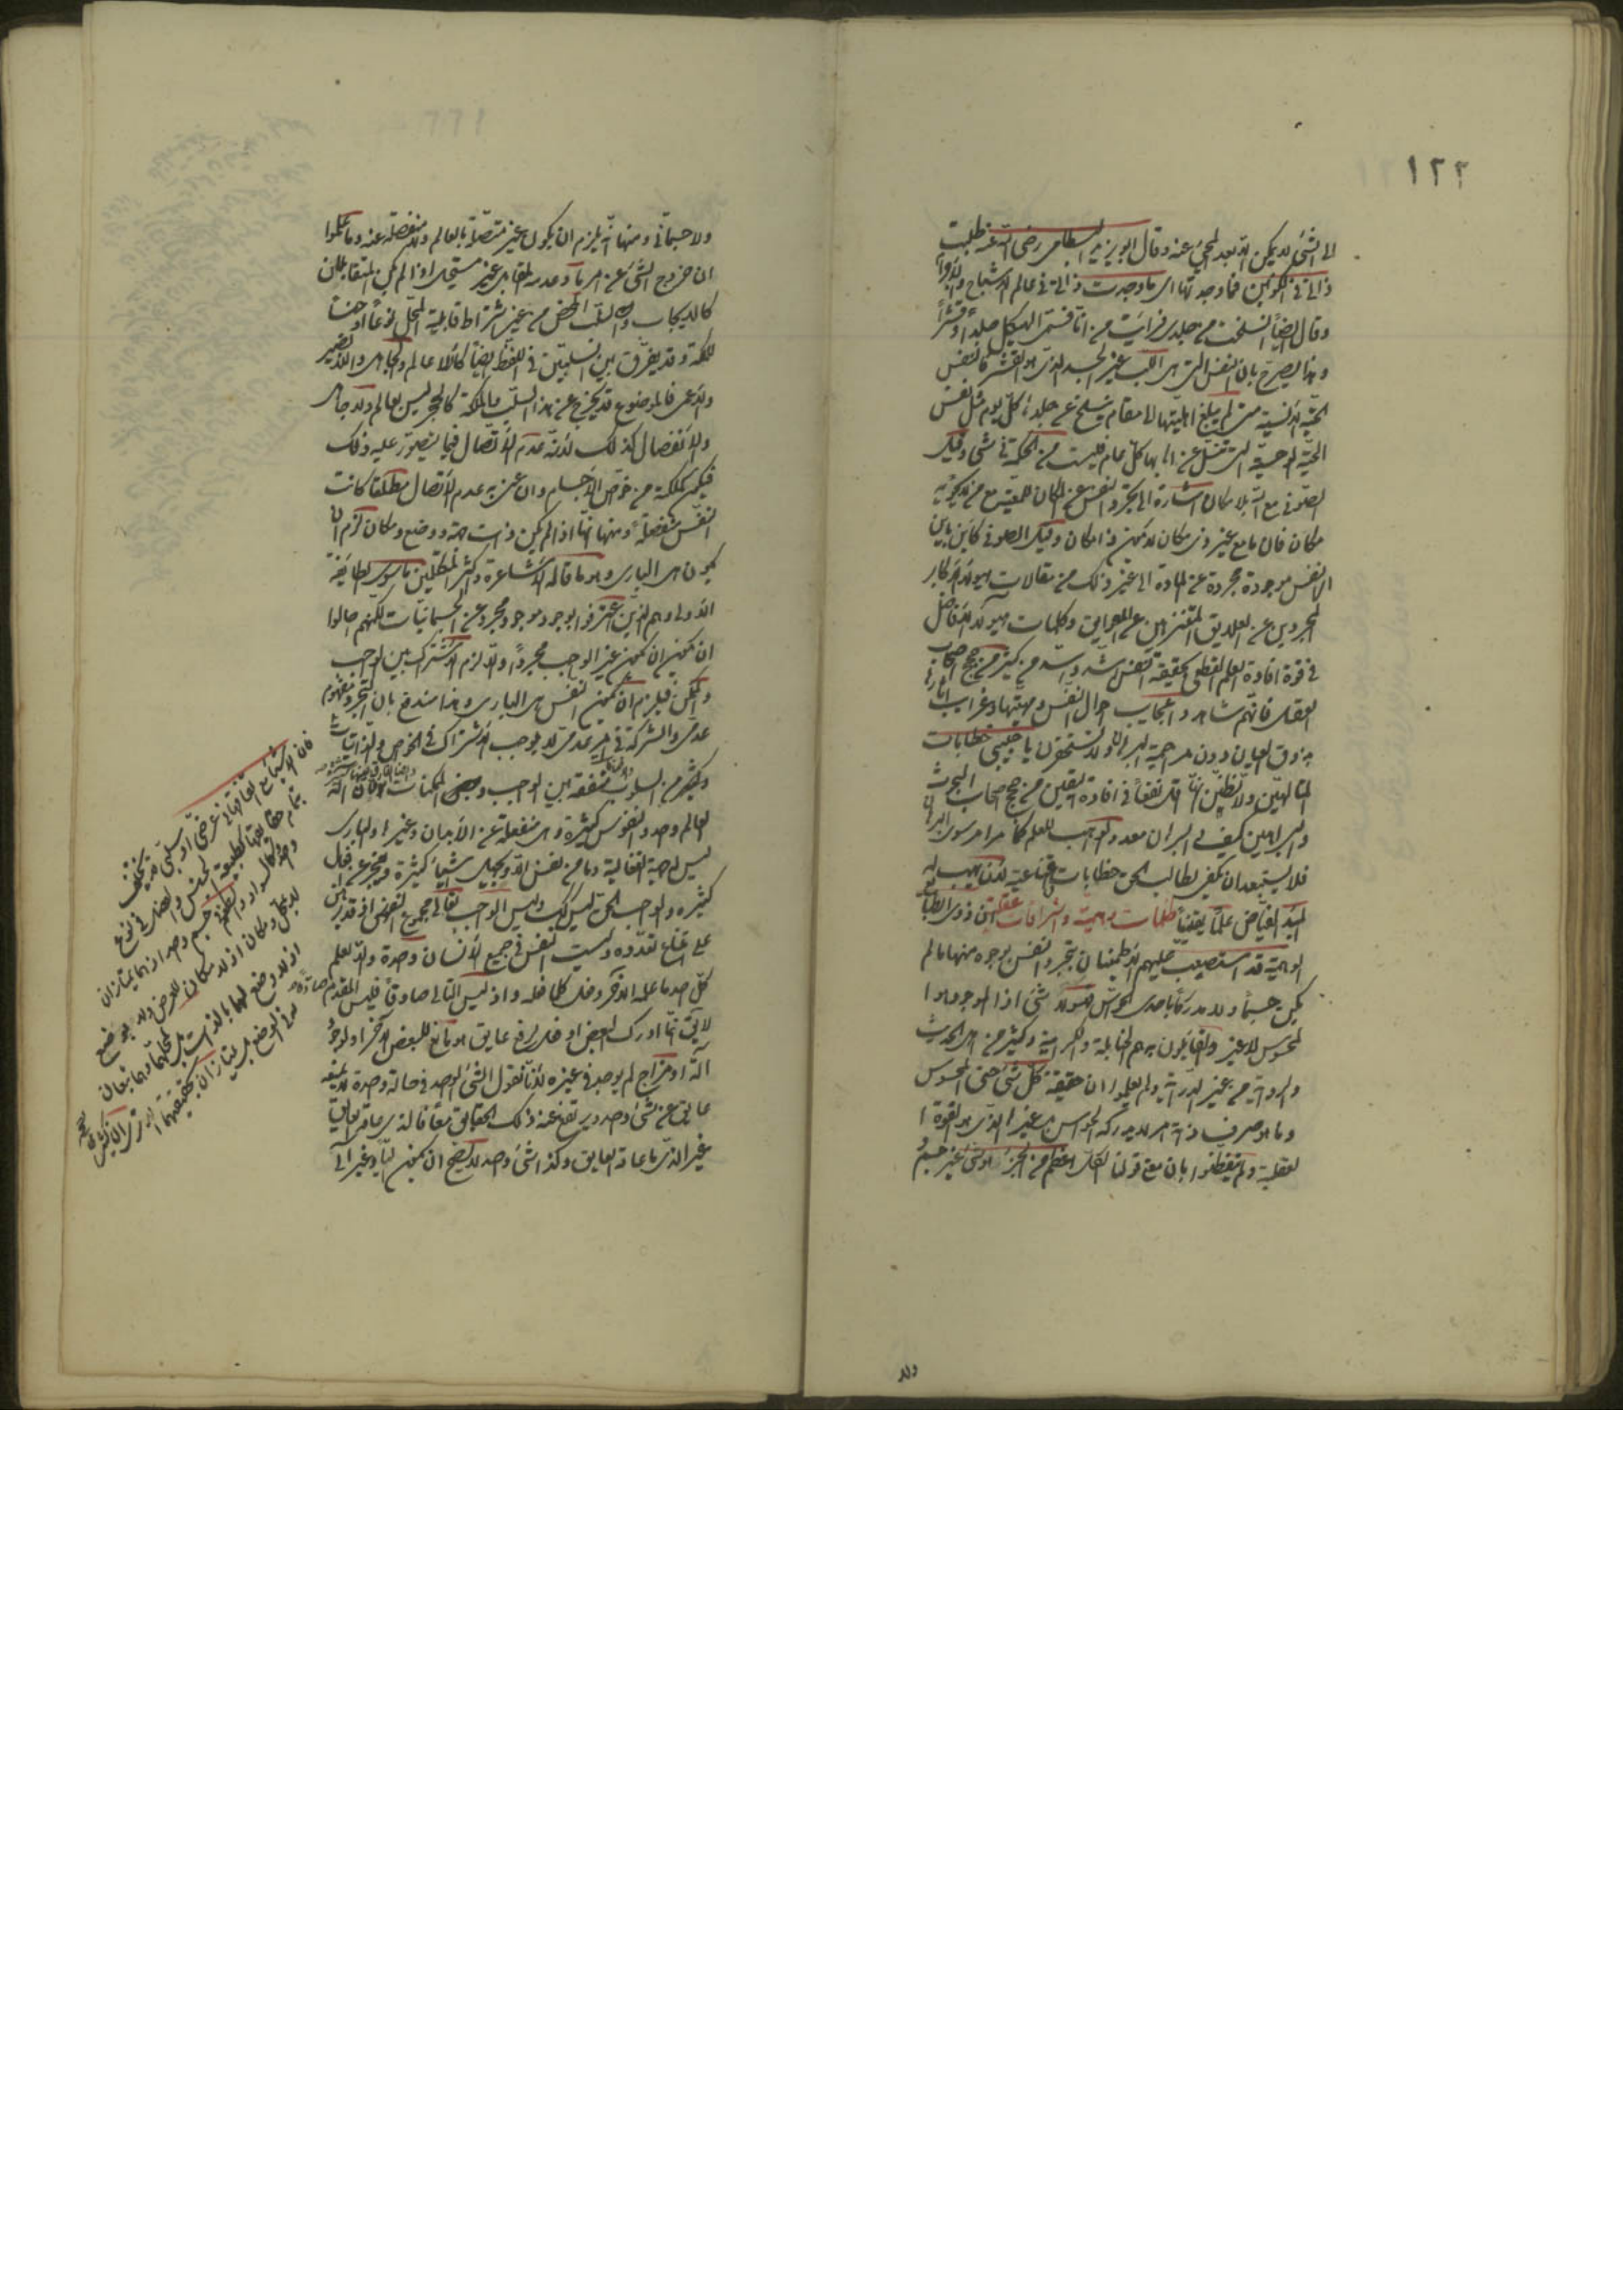 ١٢٢
الى الشئ لا يمكن الا بعد المجئ عنه وقال ابو يزيد البسطامى رضى الله عنه طلبت
ذاتى فى الكونين فما وجدتها اى ما وجدت ذاتى فى عالم الاشباح والارواح
وقال ايضاً انسلخت من جلدى فرأيت من انا فسمى الهيكل جلداً وقشراً
وهذا يصرح بان النفس التى هى اللب غير الجسد الذى هو القشر فالنفس
الحية الانسية متى لم يبلغ اهليتها الى مقام ينسلخ عن جلده كل يوم مثل نفس
الحية الوحشية التى عن اهابها كل عام فليست من الحكمة فى شئ وقيل
الصوفى مع الله بلا مكان اشارة الى تجرد النفس عن المكان للمعية مع من لا يحويه
مكان فان ما مع غير ذى مكان لا يكون ذا مكان وقيل الصوفى كاين باين
اى النفس موجودة مجردة عن المادة الى غير ذلك من مقالات هؤلاء الاكابر
المجردين عن العلايق المتنزهين عن العوايق وكلمات هؤلاء الافاضل
فى قوة افادة العلم القطعى بحقيقة النفس اشد من كثير من حجج اصحاب
العقل فانهم شاهدوا عجايب احوال النفس ومهيتها وغرايب
ذوق العيان دون مراجعة البرهان ولا تستحقرن يا حبيبى خطابات
المتألهين ولا تظنن انها اقل نفعاً فى افادة اليقين من حجج اصحاب البحث
والبراهين كيف والبرهان معد والواهب للعلم كما مر امر سوى البرهان
فلا يستبعد ان يكفى لطالب الحق خطابات واقناعية لان يهب له
المبدأ الفياض علماً يقينياً ظلمات وهمية واشراقات عقلية ان ذوى الطباع
الوهمية قد استصعب عليهم الاطمينان بتجرد النفس بوجوه منها ما لم
يكن جسماً ولا مدركاً باحدى الحواس فهو لا شئ اذا الموجود هو
المحسوس لا غير والقايلون به هم الحنابلة والكرامية وكثير من اهل الحديث
والرواية من غير الدراية ولم يعلموا ان حقيقة كل شئ حتى المحسوس
وما هو صرف ذاته امر لا يدركه الحواس بل غيرها الذى هو القوة
العقلية ولم يتفطنوا بان معنى قولنا الكل اعظم من الجزء هو شئ غير جسم
ولا
ولا جسمانى ومنها انه يلزم ان يكون غير متصلة بالعالم ولا منفصلة عنه وما علموا
ان خروج الشئ عن امر ما وعدمه المقابل غير مستحيل اذا لم يكن المتقابلان
كالايجاب والسلب المحض من غير اشتراط قابلية المحل نوعاً او جنساً
للملكة وقد يفرق بين السلبين فى اللفظ ايضاً كاللا عالم والجاهل واللا بصير
والاعمى فالموضوع قد يخرج عن هذا السلب والملكة كالحجر ليس بعالم ولا جاهل
والانفصال كذلك لانه عدم الاتصال فيما يتصور عليه وذلك
فيكون كملكته من خواص الاجسام وان عنى به عدم الاتصال مطلقا كانت
النفس منفصلة ومنها انها اذا لم يكن ذات جهة ووضع ومكان لزم ان
يكون هى البارى وهو ما قاله الاشاعرة واكثر المتكلمين ما سوى الطايفة
الاولى وهم الذين اعترفوا بوجود موجود مجرد عن الجسمانيات لكنهم احالوا
ان يكون غير الواجب مجرداً والا لزم الاشتراك بين الواجب
والممكن فيلزم ان يكون النفس هى البارى وهذا مندفع بان التجرد مفهوم
عدمى والشركة فى امر عدمى لا يوجب الاشتراك فى الخواص والذاتيات
وكثير من السلوب متفقة بين الواجب وبعض الممكنات كان اله
العالم واحد والنفوس كثيرة وهى منفعلة عن الابدان وغيرها والبارى
ليس له جهة انفعالية وما من نفس الا ويجهل اشياء كثيرة ويعجز عن افعال
كثيرة والواجب الحق ليس كذلك وليس الواجب تعالى مجموع النفوس اذ قد برهن
على امتناع تعدده وليست النفس فى جميع الانسان واحدة والا لعلم
كل احد ما علمه الآخر وفعل كلما فعله واذ ليس التالى صادقاً فليس المقدم صادقا
لا يق انما ادرك البعض او فعل لرفع عايق هو مانع للبعض الآخر او لوجود
آلة او مزاج لم يوجد فى غيره لانا نقول الشئ الواحد فى حالة واحدة لا يمنعه
عايق عن شئ واحد ويرتفع عنه ذلك العايق معاً فالذى عاقه العايق
غير الذى ما عاقه العايق وكذا شئ واحد لا يصح ان يكون آلياً وغير آلى
فان الاشياء مع اتفاقها فى عرضى او سلبى قد يختلف
بتمام حقايقها كطبيعة الجنس والفصل فى نوع
واحد وكالسواد والطعم فى جسم واحد اذ هما يمتازان
لا بمحل ومكان اذ لا مكان للعرض ولا بوضع
اذ لا وضع لهما بالذات بل لمحلهما وهما متفقان
فى الوضع بل يمتازان بحقيقتهما